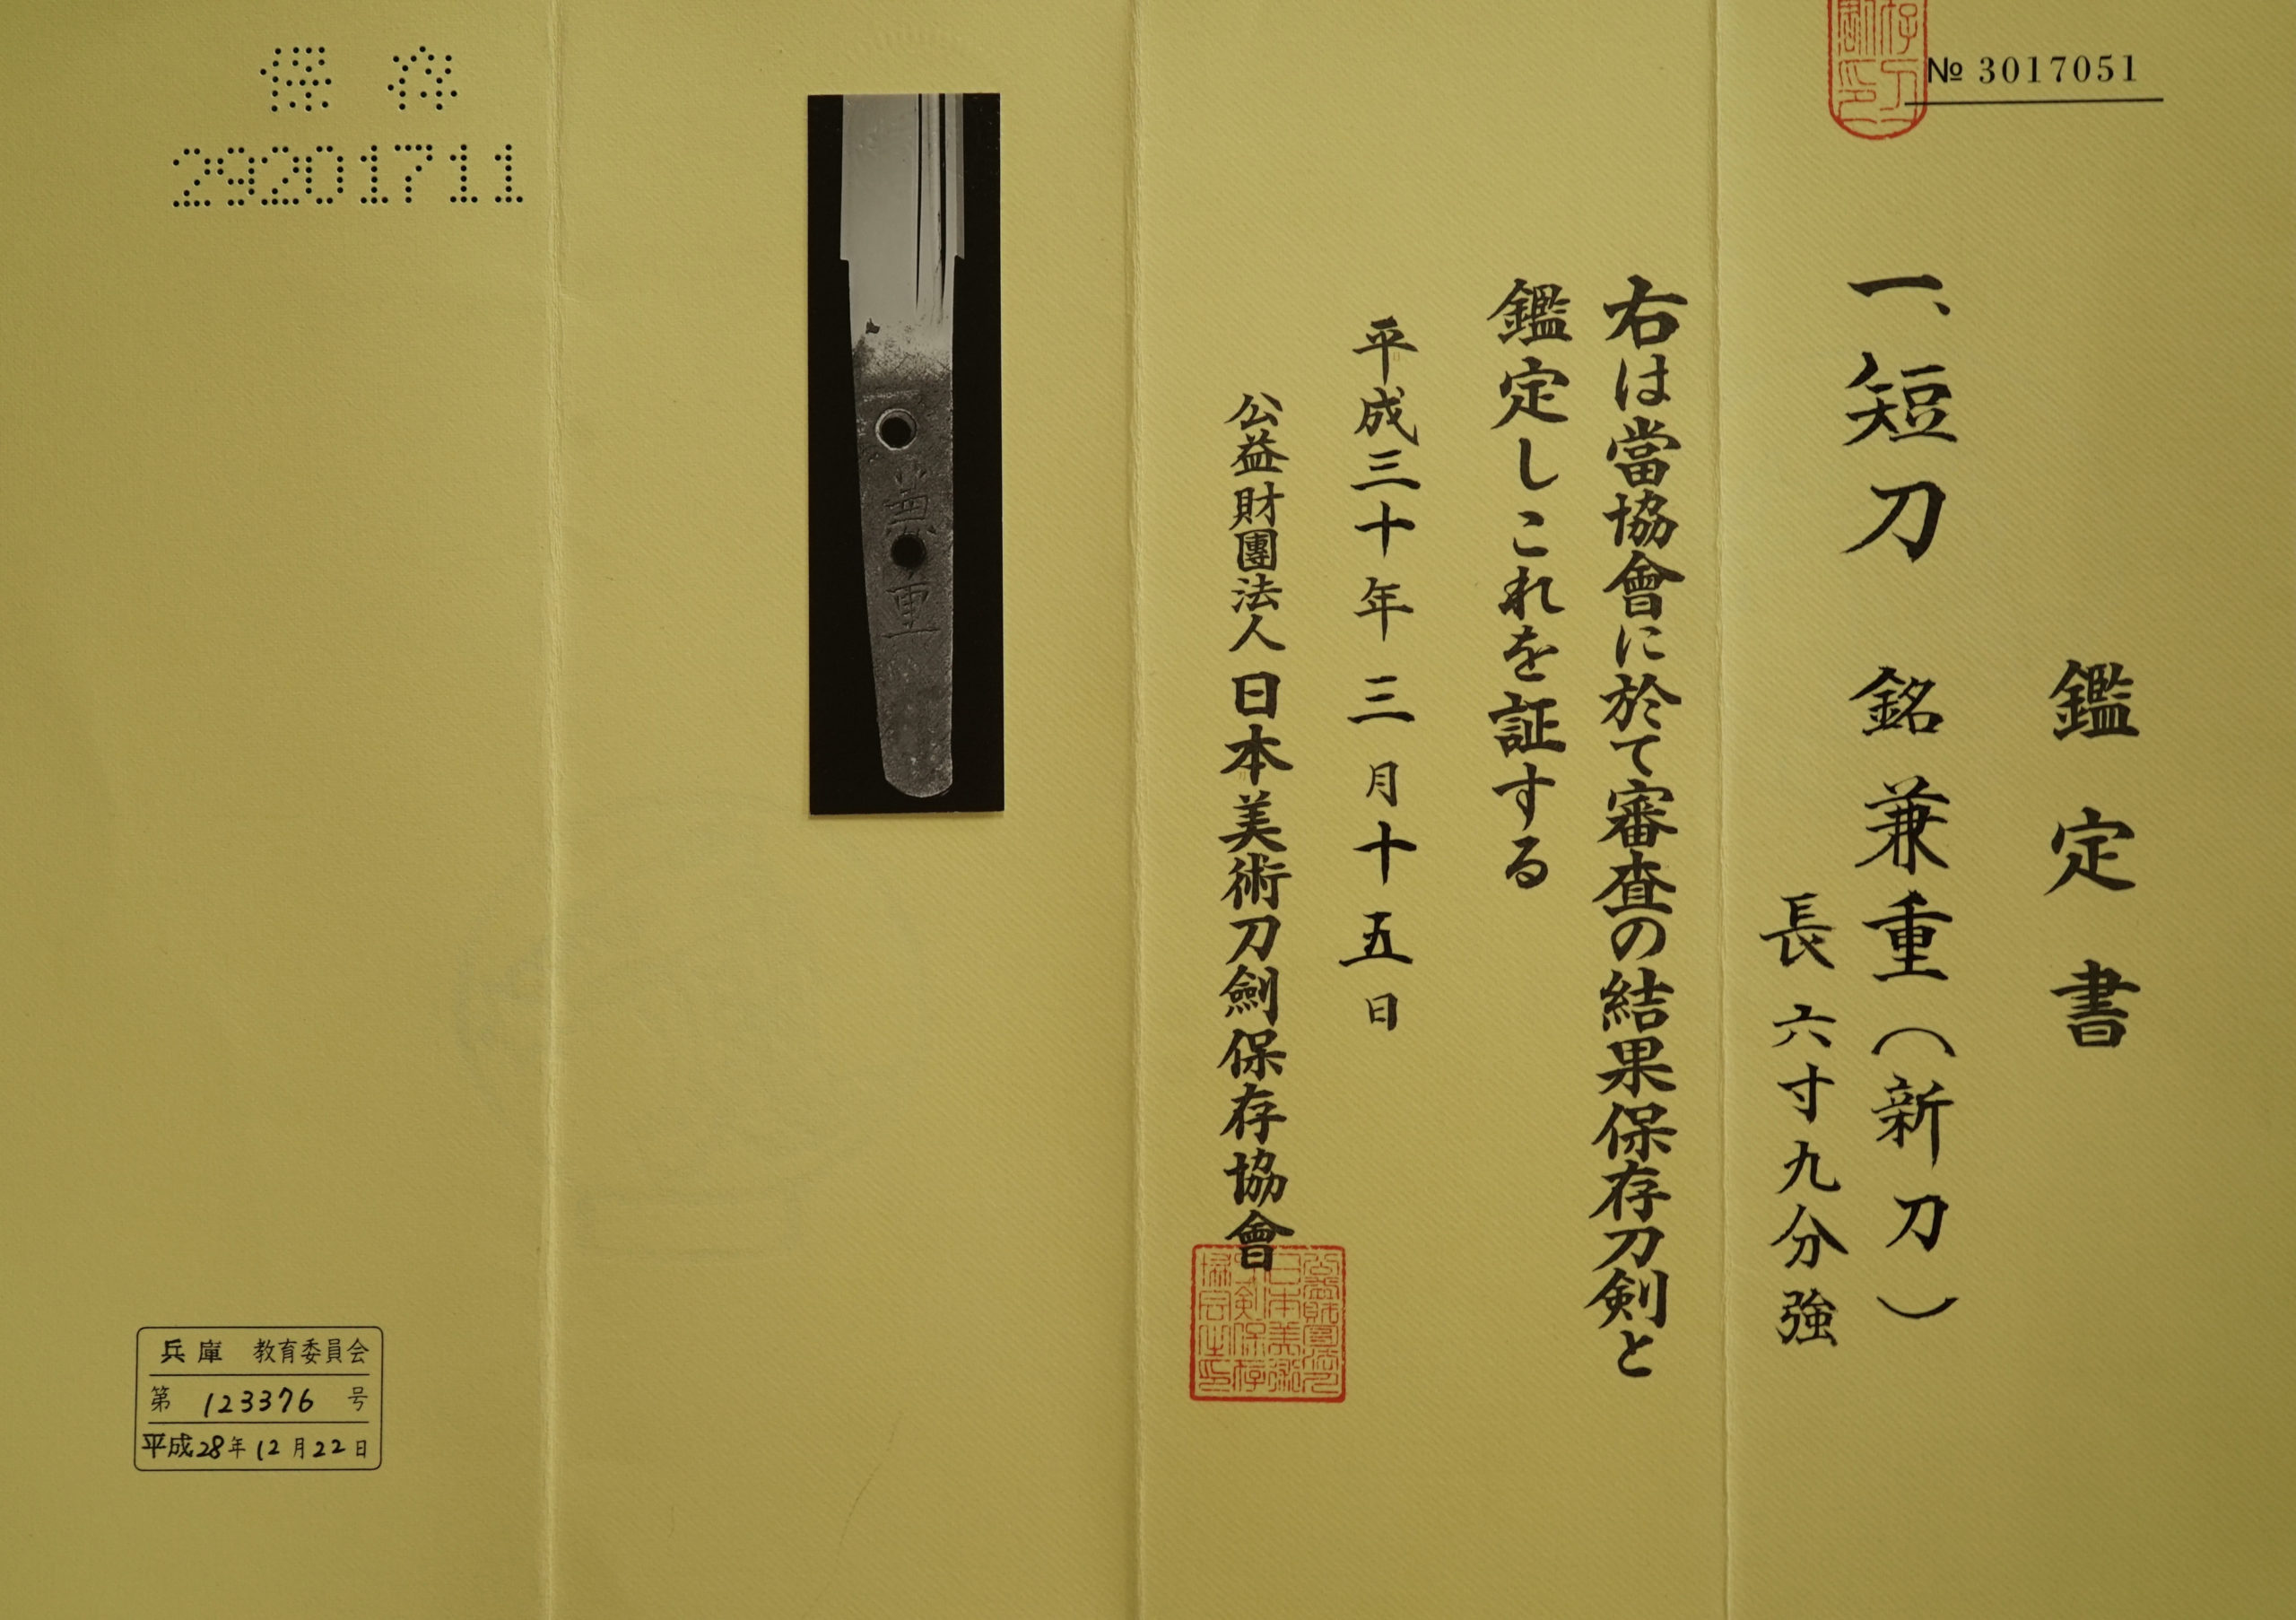 № 3017051
鑑定書
一、短刀 銘 兼重(新刀)
長六寸九分強
右は當協會に於て審査の結果保存刀剣と
鑑定しこれを証する
平成三十年三月十五日
公益財團法人日本美術刀劍保存協會
兼重
保存
29201711
兵庫 教育委員会
第 123376 号
平成28年12月22日